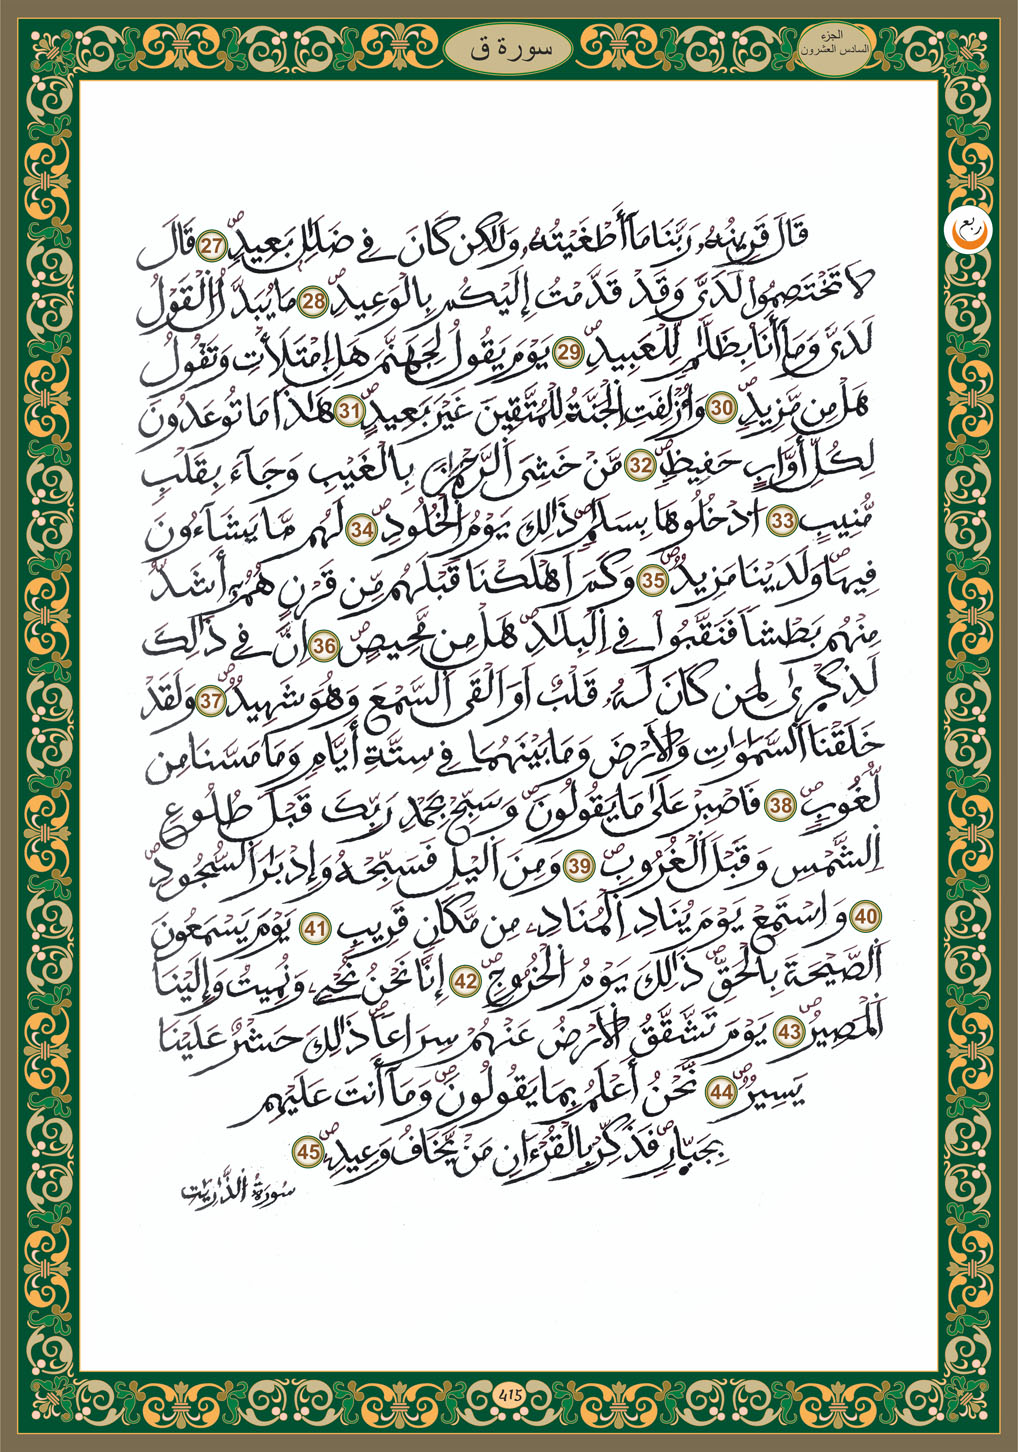 سورة ق
الجزء
السادس العشرون
ربع
قَالَ قَرِينُهُۥ رَبَّنَا مَآ أَطْغَيْتُهُۥ وَلَٰكِن كَانَ فِي ضَلَٰلِۢ بَعِيدٖ 27 قَالَ
لَا تَخْتَصِمُواْ لَدَيَّ وَقَدْ قَدَّمْتُ إِلَيْكُم بِالْوَعِيدِ 28 مَا يُبَدَّلُ الْقَوْلُ
لَدَيَّ وَمَآ أَنَا بِظَلَّٰمٖ لِّلْعَبِيدِ 29 يَوْمَ يَقُولُ لِجَهَنَّمَ هَلِ اِمْتَلَأْتِ وَتَقُولُ
هَلْ مِن مَّزِيدٖ 30 وَأُزْلِفَتِ اِلْجَنَّةُ لِلْمُتَّقِينَ غَيْرَ بَعِيدٍ 31 هَٰذَا مَا تُوعَدُونَ
لِكُلِّ أَوَّابٍ حَفِيظٖ 32 مَّنْ خَشِيَ اَلرَّحْمَٰنَ بِالْغَيْبِ وَجَآءَ بِقَلْبٖ
مُّنِيبٍ 33 اُدْخُلُوهَا بِسَلَٰمٖ ذَٰلِكَ يَوْمُ الْخُلُودِ 34 لَهُم مَّا يَشَآءُونَ
فِيهَا وَلَدَيْنَا مَزِيدٞ 35 وَكَمَ اَهْلَكْنَا قَبْلَهُم مِّن قَرْنٍ هُمُۥٓ أَشَدُّ
مِنْهُم بَطْشاٗ فَنَقَّبُواْ فِي اِلْبِلَٰدِ هَلْ مِن مَّحِيصٍ 36 اِنَّ فِي ذَٰلِكَ
لَذِكْرَىٰ لِمَن كَانَ لَهُۥ قَلْبٌ اَوَ اَلْقَى اَلسَّمْعَ وَهُوَ شَهِيدٞ 37 وَلَقَدْ
خَلَقْنَا اَلسَّمَٰوَٰتِ وَالْأَرْضَ وَمَا بَيْنَهُمَا فِي سِتَّةِ أَيَّامٖ وَمَا مَسَّنَا مِن
لُّغُوبٖ 38 فَاصْبِرْ عَلَىٰ مَا يَقُولُونَ وَسَبِّحْ بِحَمْدِ رَبِّكَ قَبْلَ طُلُوعِ
اِلشَّمْسِ وَقَبْلَ اَلْغُرُوبِ 39 وَمِنَ اَلَّيْلِ فَسَبِّحْهُ وَإِدْبَٰرَ اَلسُّجُودِ
40 وَاسْتَمِعْ يَوْمَ يُنَادِ اِلْمُنَادِۦ مِن مَّكَانٖ قَرِيبٖ 41 يَوْمَ يَسْمَعُونَ
اَلصَّيْحَةَ بِالْحَقِّ ذَٰلِكَ يَوْمُ الْخُرُوجِ 42 إِنَّا نَحْنُ نُحْيِۦ وَنُمِيتُ وَإِلَيْنَا
اَلْمَصِيرُ 43 يَوْمَ تَشَّقَّقُ الْأَرْضُ عَنْهُمْ سِرَاعاٗ ذَٰلِكَ حَشْرٌ عَلَيْنَا
يَسِيرٞ 44 نَّحْنُ أَعْلَمُ بِمَا يَقُولُونَ وَمَآ أَنتَ عَلَيْهِم
بِجَبَّارٖ فَذَكِّرْ بِالْقُرْءَانِ مَنْ يَّخَافُ وَعِيدِ 45
سُورَةُ الذَّٰرِيَٰتِ
415